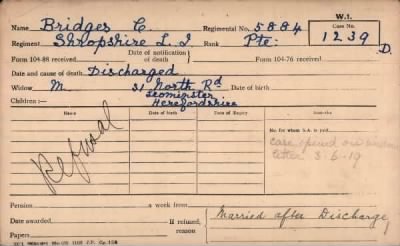 W.1.
Name Bridges C. Regimental No. 5884 Case No.
Regiment Shropshire L. I. Rank Pte. 1239 D
Form 104-88 received Date of notification of death Form 104-76 received
Date and cause of death Discharged
Widow M. 31 North Rd Date of birth
Leominster
Children:— Herefordshire
Name Date of Birth Date of Expiry Remarks
No. for whom S.A. is paid
Refusal
case opened on
letter 3-6-19
Pension a week from
Date awarded If refused, reason Married after Discharge